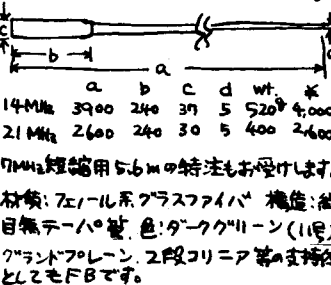 c
b
a
a b c d wt. *
14MHz 3900 240 37 5 520g 4,000
21MHz 2600 240 30 5 400 2,600
7MHz短縮用5.6mの特注もお受けします
材質:フェノール系グラスファイバ 構造:
目無テーパ製 色:ダークグリーン(11号)
グランドプレーン、2段コリニア等の支持
としてもFBです。